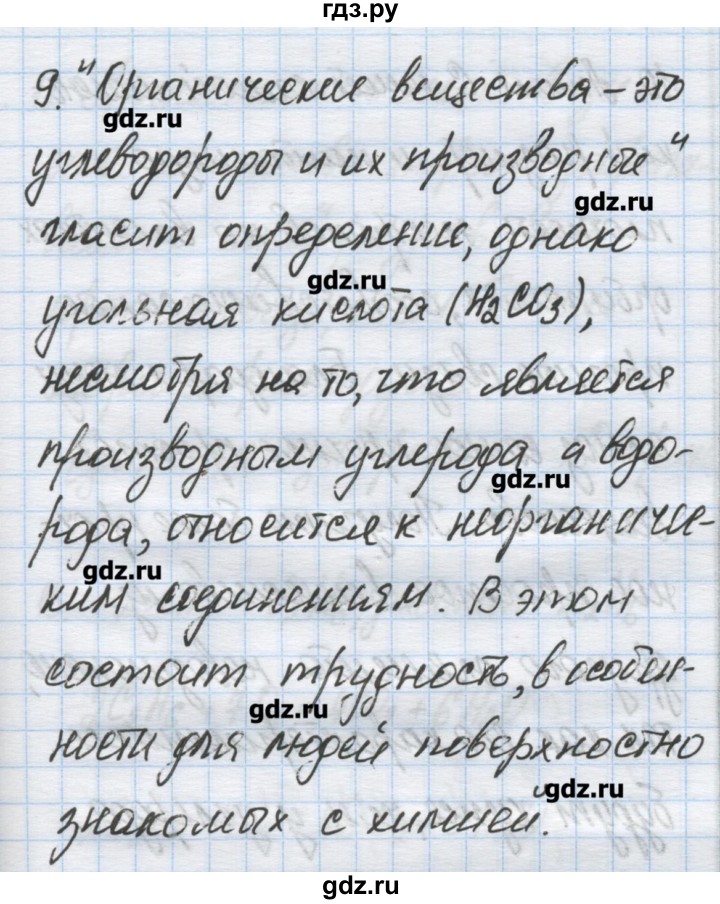 гдз.ру
9. "Органические вещества – это
gdz.ru
углеводороды и их производные"
gdz.ru
гласит определение, однако
gdz.ru
угольная кислота (H2CO3),
несмотря на то, что является
производным углерода и водо-
gdz.ru
рода, относится к неорганичес-
gdz.ru
ким соединениям. В этом
состоит трудность, в особен-
gdz.ru
ности для людей поверхностно
gdz.ru
знакомых с химией.
gdz.ru